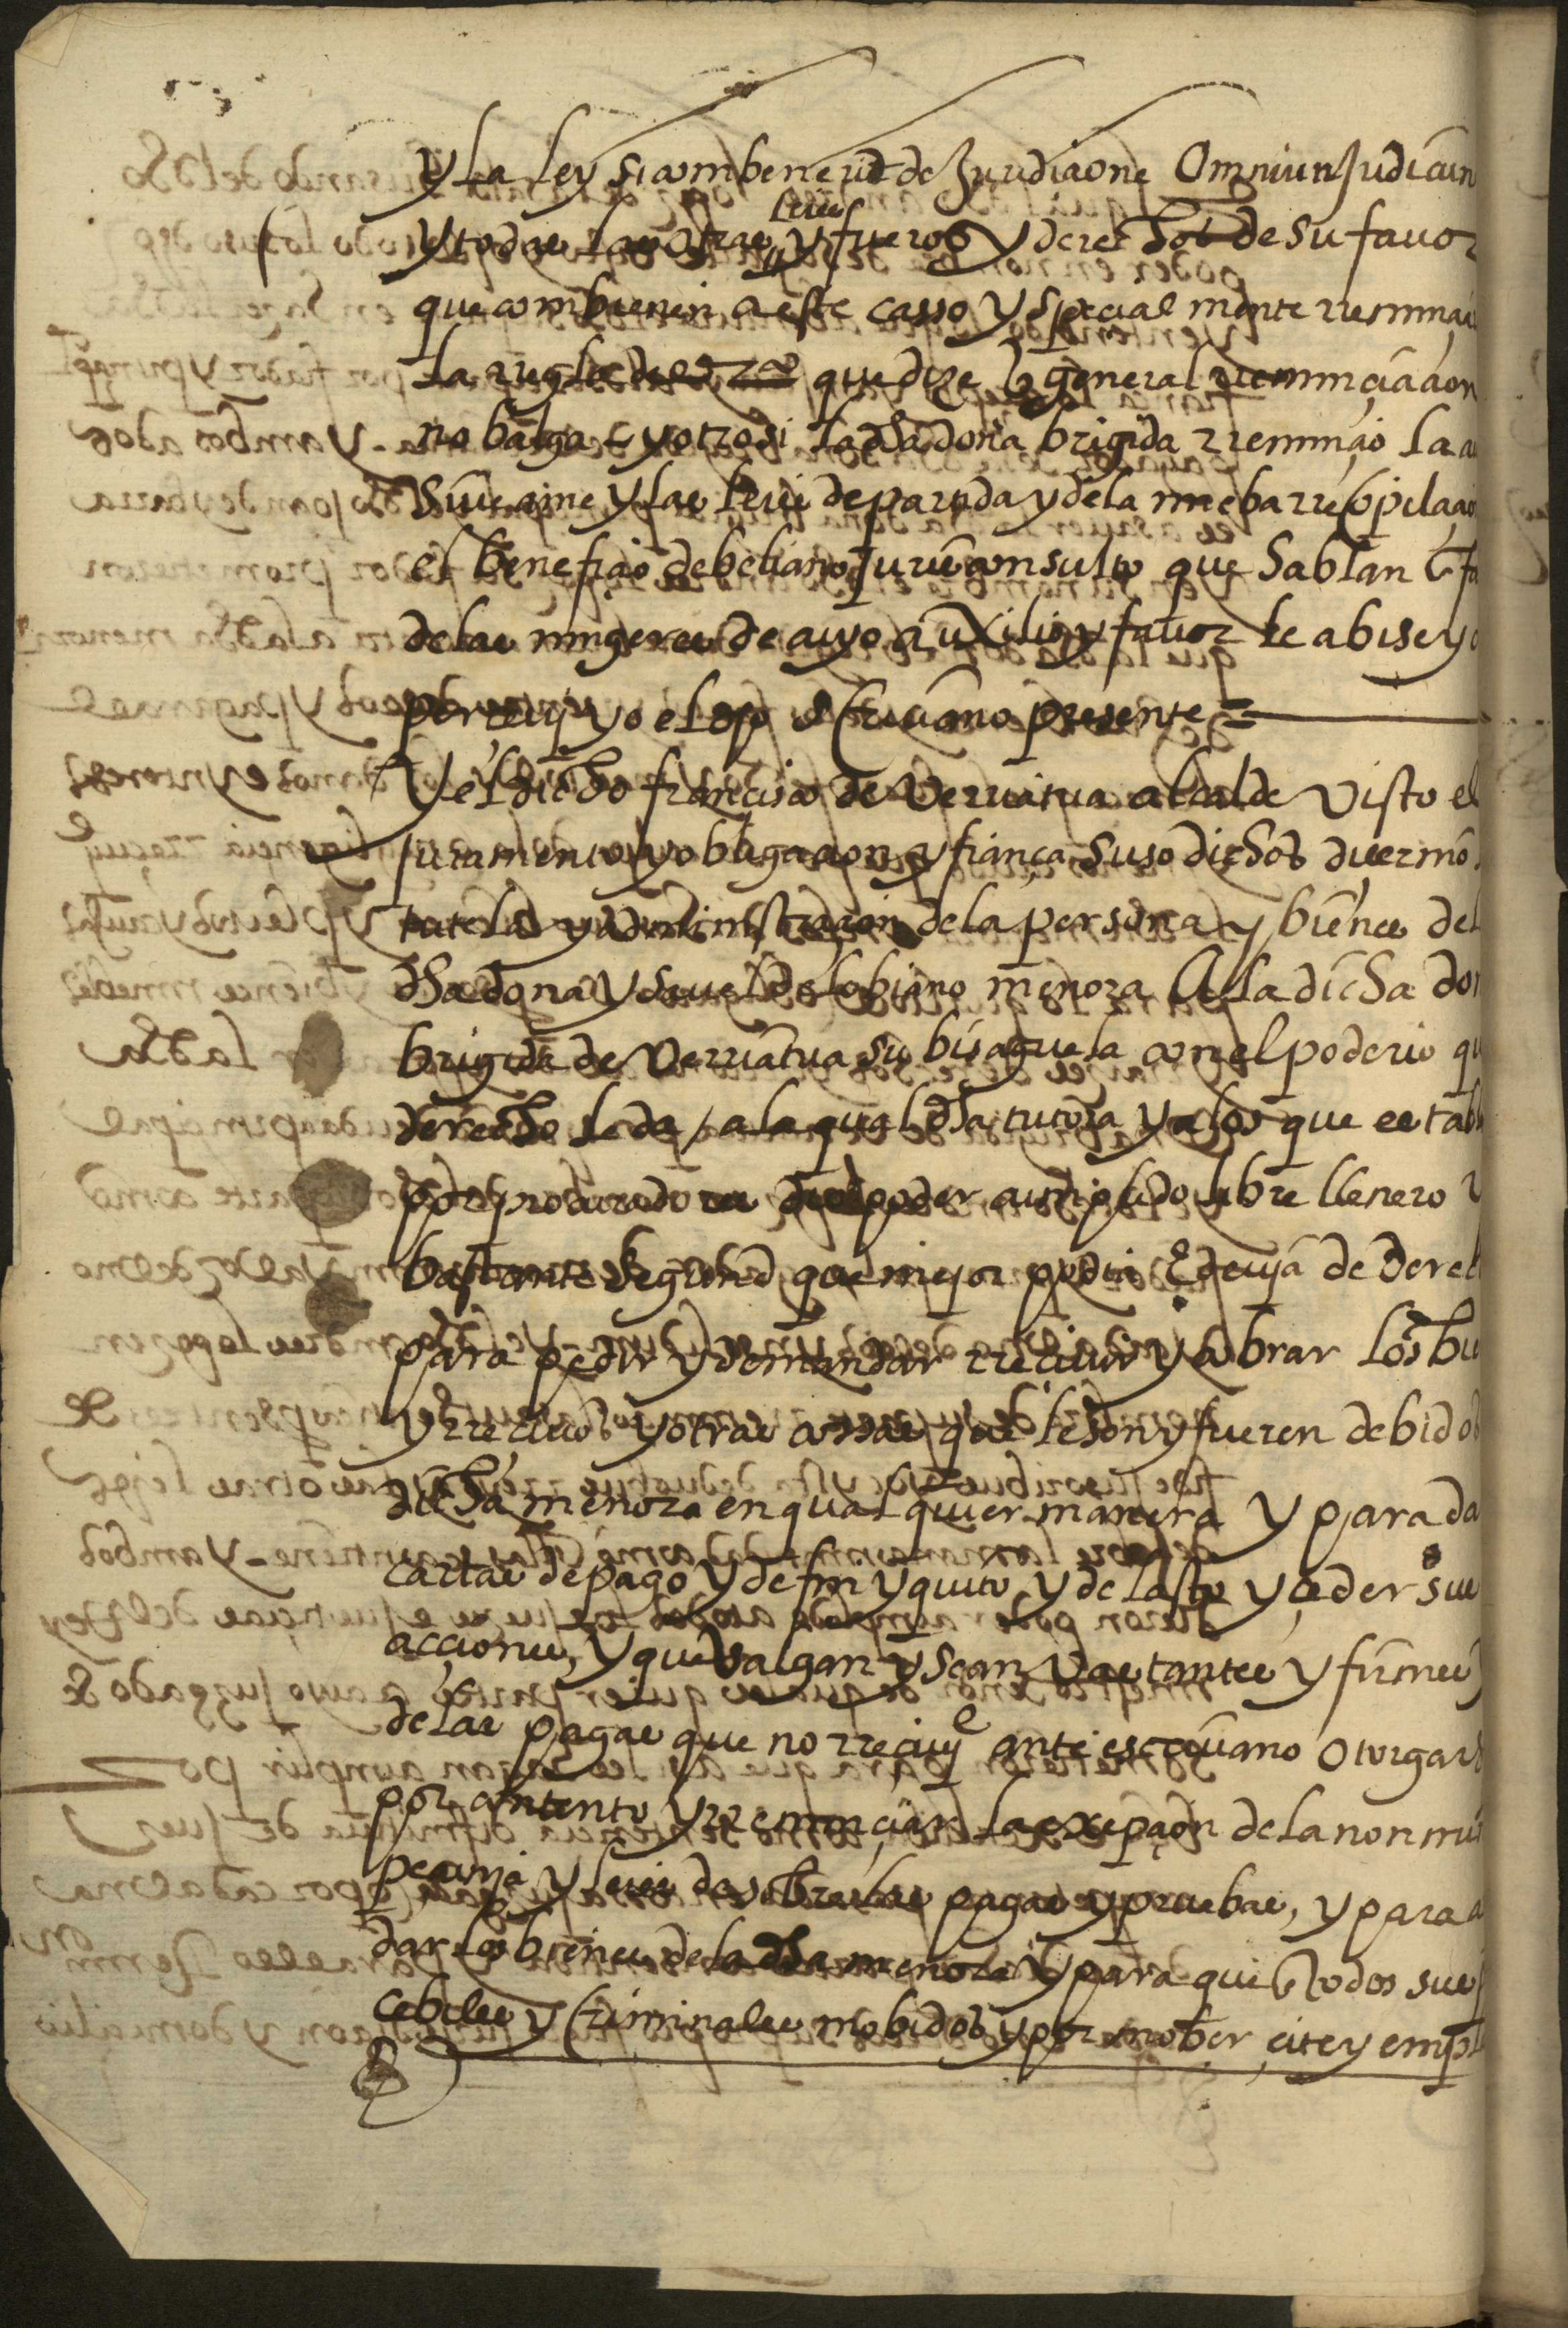 y la ley si combenerid de Jurudicione Omniun Judicun
y todas las otras leies y fueros y derechos de su favor
que combienen a este casso y special mente rrenunçia
la rregla del dro que dize q general rrenunçiaçion
no balga - y otrosi la dha doña brigida rrenunçio la a
Sisveaine y las leies de partida y de la nueba rrecopilaçio
el benefiçio de beliano Jurisconsulto que hablan en fa
de las mugeres de cuyo auxilio y favor le abise yo
por leuy yo el dho scrivano presente =
Y el dicho francisco de Verriatua alcalde visto el
juramento y obligaçion y fiança suso dichos diçernio
tutela y administraçion de la persona y bienes de l
dha dona ysavel de lobiano menora A la dicha don
brigida de Verriatua su bisaguela con el poderio qu
derecho le da / a la qual dha tutora y a los que estab
por procuradores dio el poder cunplido libre llenero y
bastante segund que mejor podia e devia de derec
para pedir y demandar rrecivir y cobrar los bie
y rrecivos y otras cossas que le son y fueren debidos
dicha menora en qualquier manera y para da
cartas de pago y de fin y quito y de lasto y çeder sus
acciones, y que valgan y sean vastantes y firmes y
de las pagas que no rreciuy e ante escrivano otorgars
por contento y rrenunçiar la exepçion de la non nu
pecunia y leies de sobre las pagas y pruebas, y para a
dar los bienes de la dha menora y para que en todos sus p
cebiles y criminales mobidos y por mober, çite y empl